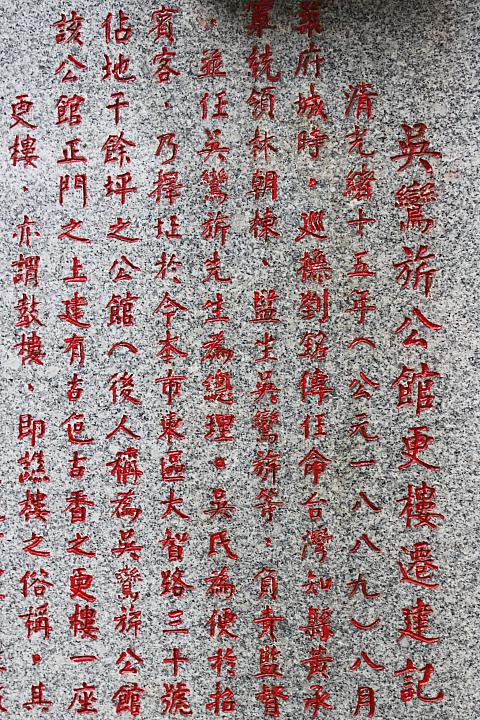 吳鸞旂公館更樓遷建記
清光緒十五年(公元一八八九)八月
築府城時，巡撫劉銘傳任命台灣知縣黃承
軍統領林朝棟、監生吳鸞旂等，負責監督
，並任吳鸞旂先生為總理。吳氏為便於招
賓客，乃擇址於今本市東區大智路三十號
佔地千餘坪之公館(後人稱為吳鸞旂公館
該公館正門之上建有古色古香之更樓一座
更樓、亦謂鼓樓、即譙樓之俗稱。其